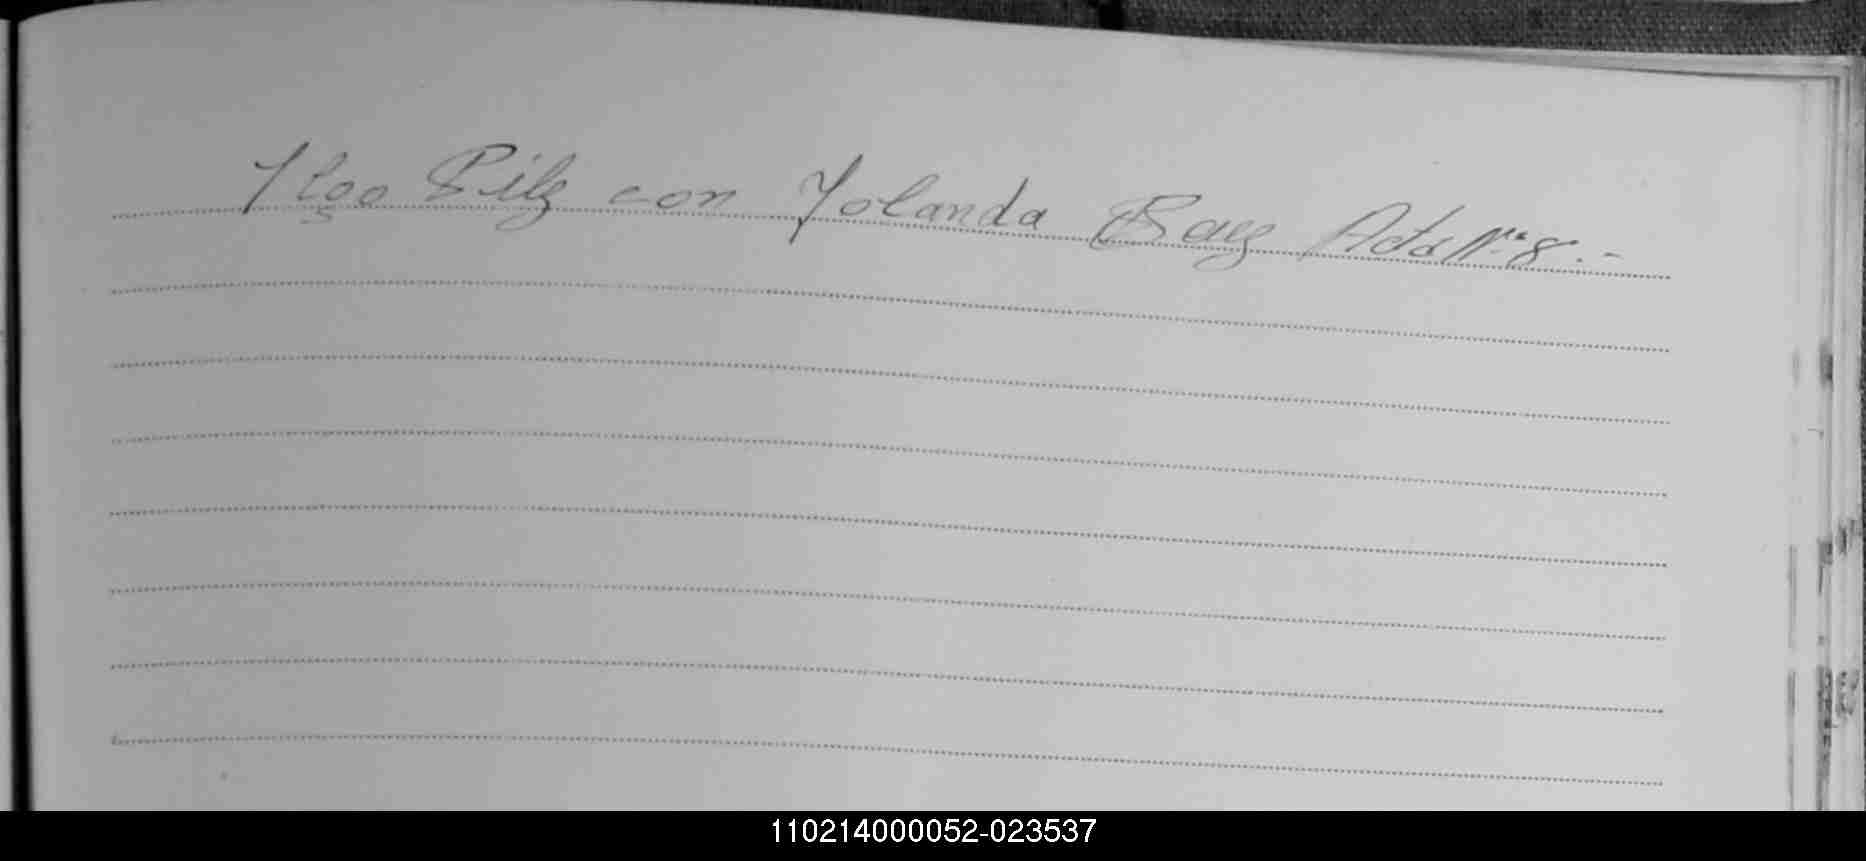 Ilgo Pilz con Yolanda Baez Acta Nº 8.-
110214000052-023537